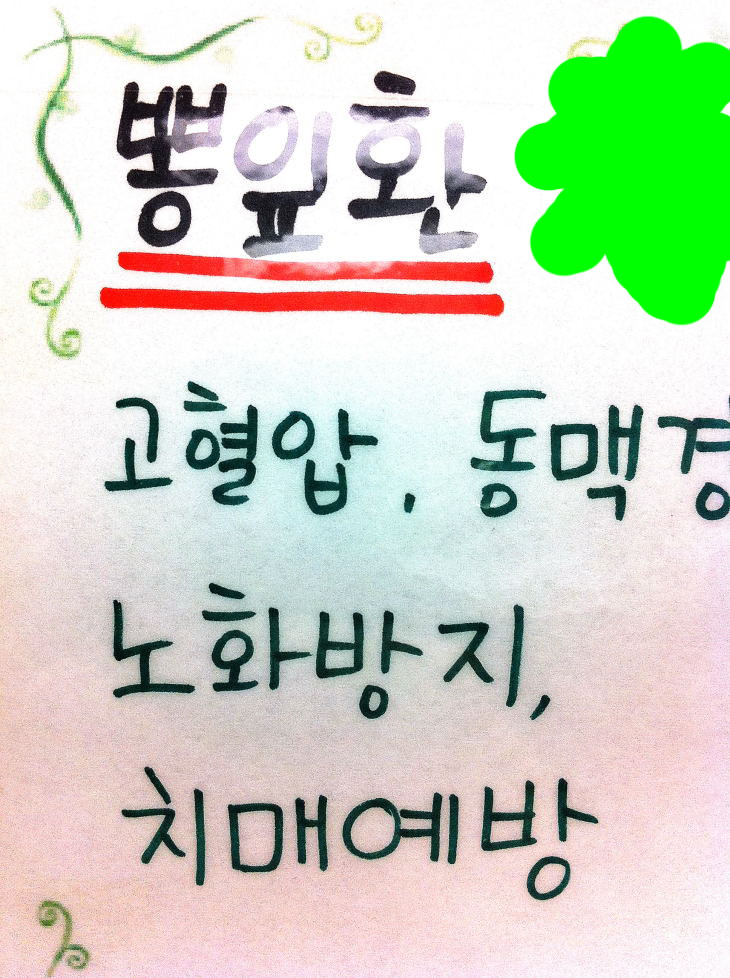 뽕잎환
고혈압, 동맥경
노화방지,
치매예방